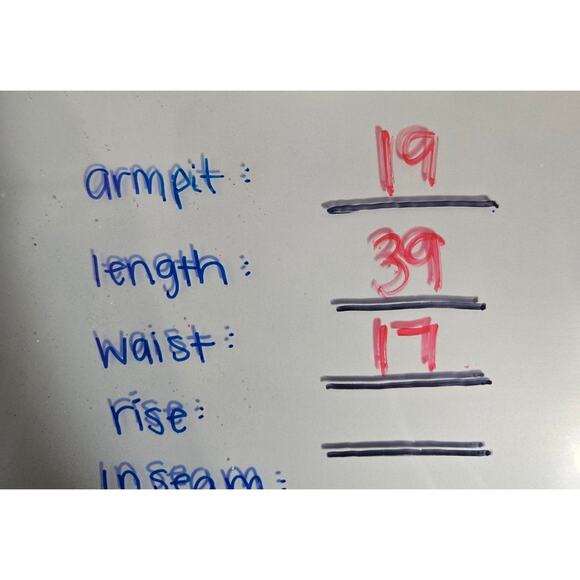 armpit: 19
length: 39
waist: 17
rise:
inseam: